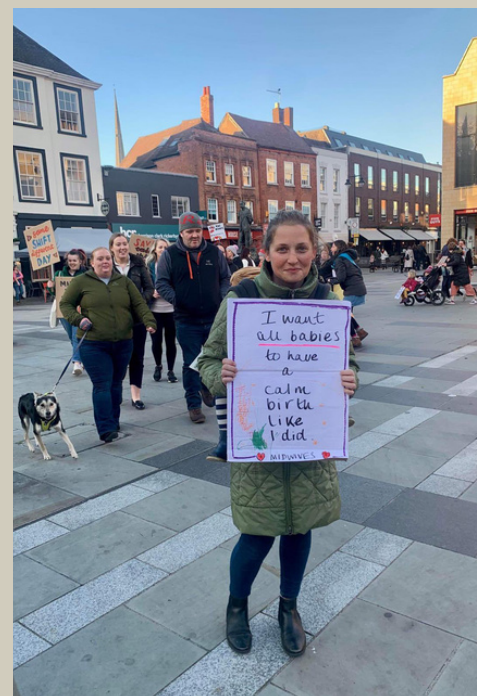 I want
all babies
to have
a
calm
birth
like
I did
MIDWIVES
SHIFT
DAY
SAY